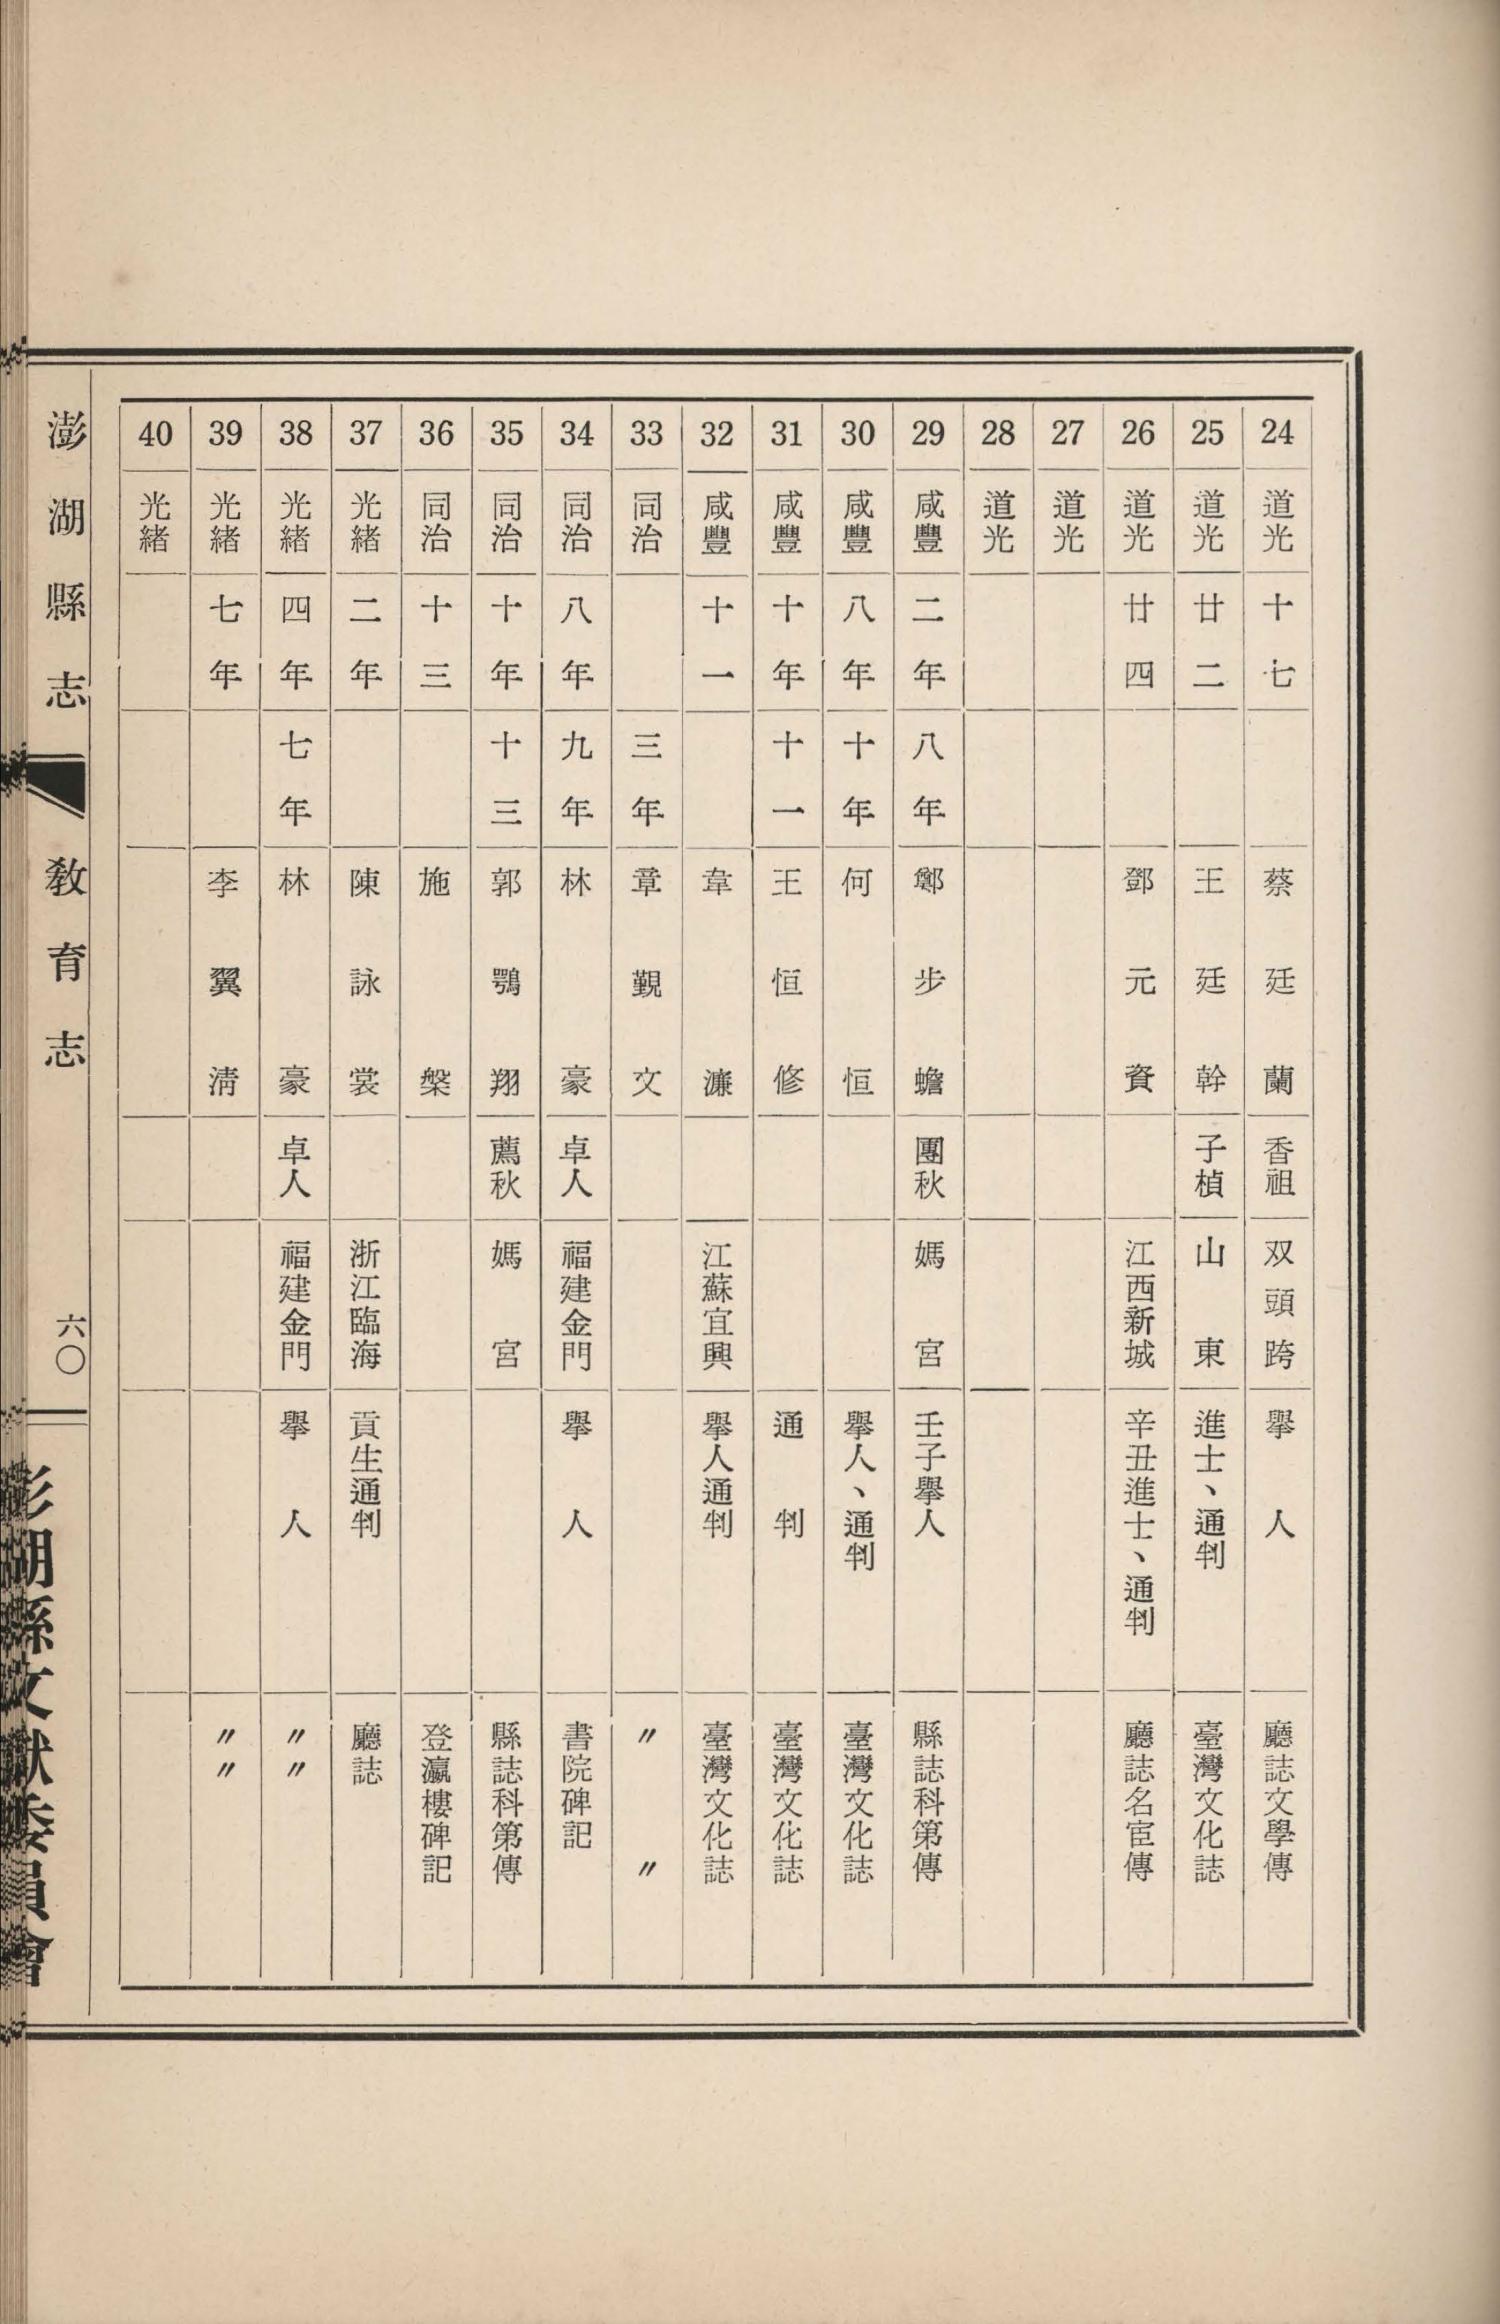 24 道光 十七 蔡廷蘭 香祖 双頭跨 擧人 廳誌文學傳
25 道光 廿二 王廷幹 子楨 山東 進士、通判 臺灣文化誌
26 道光 廿四 鄧元資 江西新城 辛丑進士、通判 廳誌名宦傳
27 道光
28 道光
29 咸豐 二年 八年 鄭步蟾 團秋 媽宮 壬子擧人 縣誌科第傳
30 咸豐 八年 十年 何恒 擧人、通判 臺灣文化誌
31 咸豐 十年 十一 王恒修 通判 臺灣文化誌
32 咸豐 十一 韋濂 江蘇宜興 擧人通判 臺灣文化誌
33 同治 三年 章覲文 〃〃
34 同治 八年 九年 林豪 卓人 福建金門 擧人 書院碑記
35 同治 十年 十三 郭鶚翔 薦秋 媽宮 縣誌科第傳
36 同治 十三 施槃 登瀛樓碑記
37 光緒 二年 陳詠裳 浙江臨海 貢生通判 廳誌
38 光緒 四年 七年 林豪 卓人 福建金門 擧人 〃〃
39 光緒 七年 李翼淸 〃〃
40 光緒
澎湖縣志 教育志 六〇
澎湖縣文獻委員會